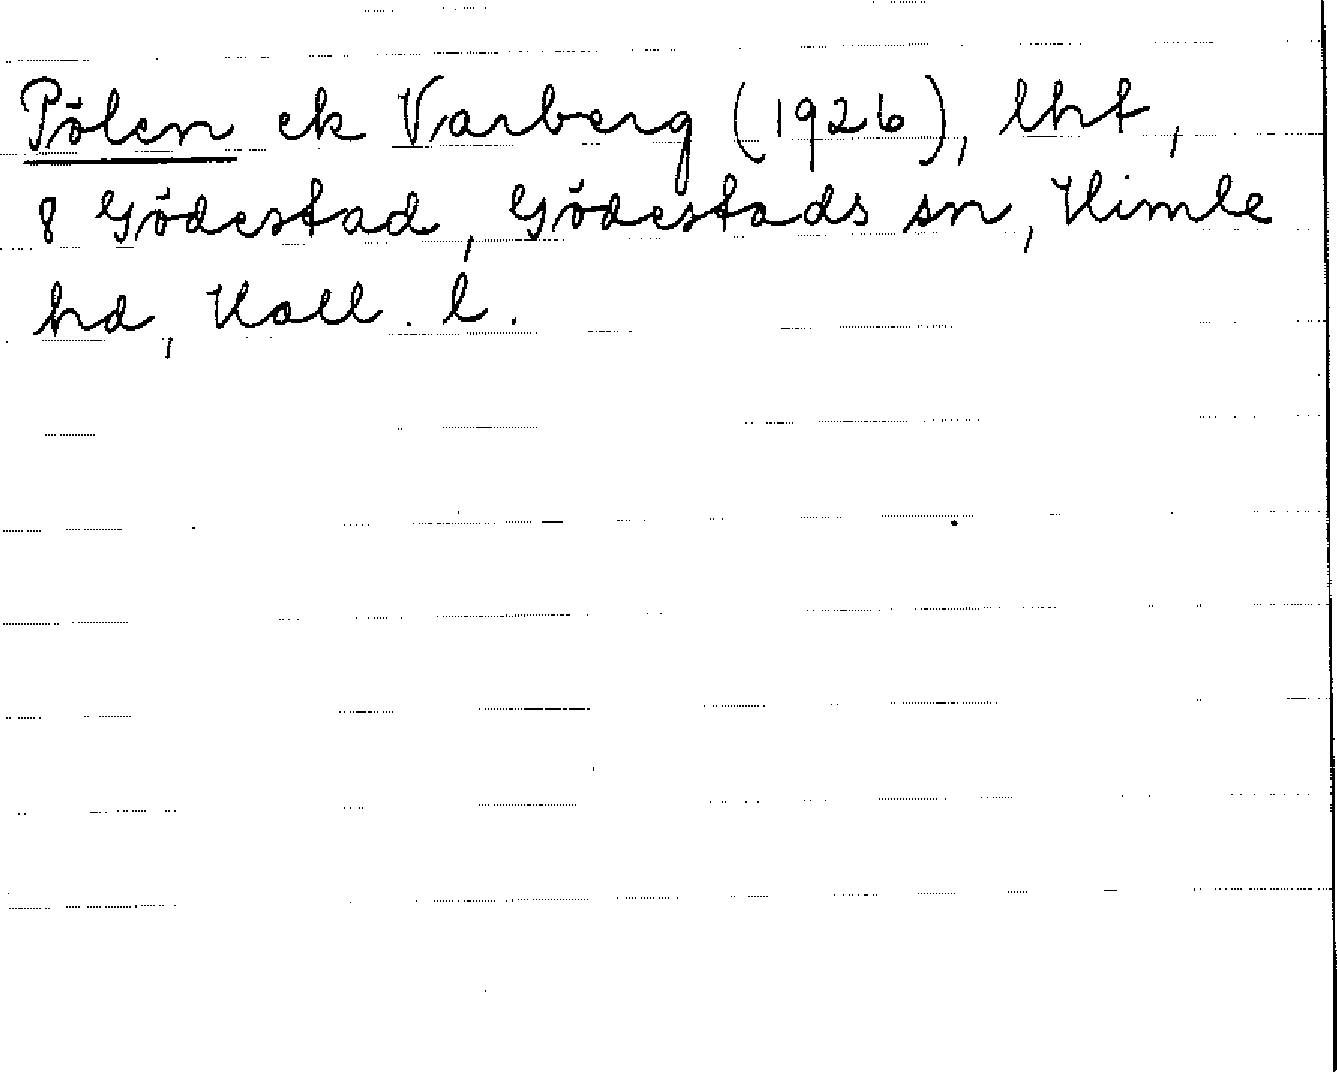 Pölen ek Varberg (1926), lht,
8 Gödestad, Gödestads sn, Himle
hd, Hall. l.